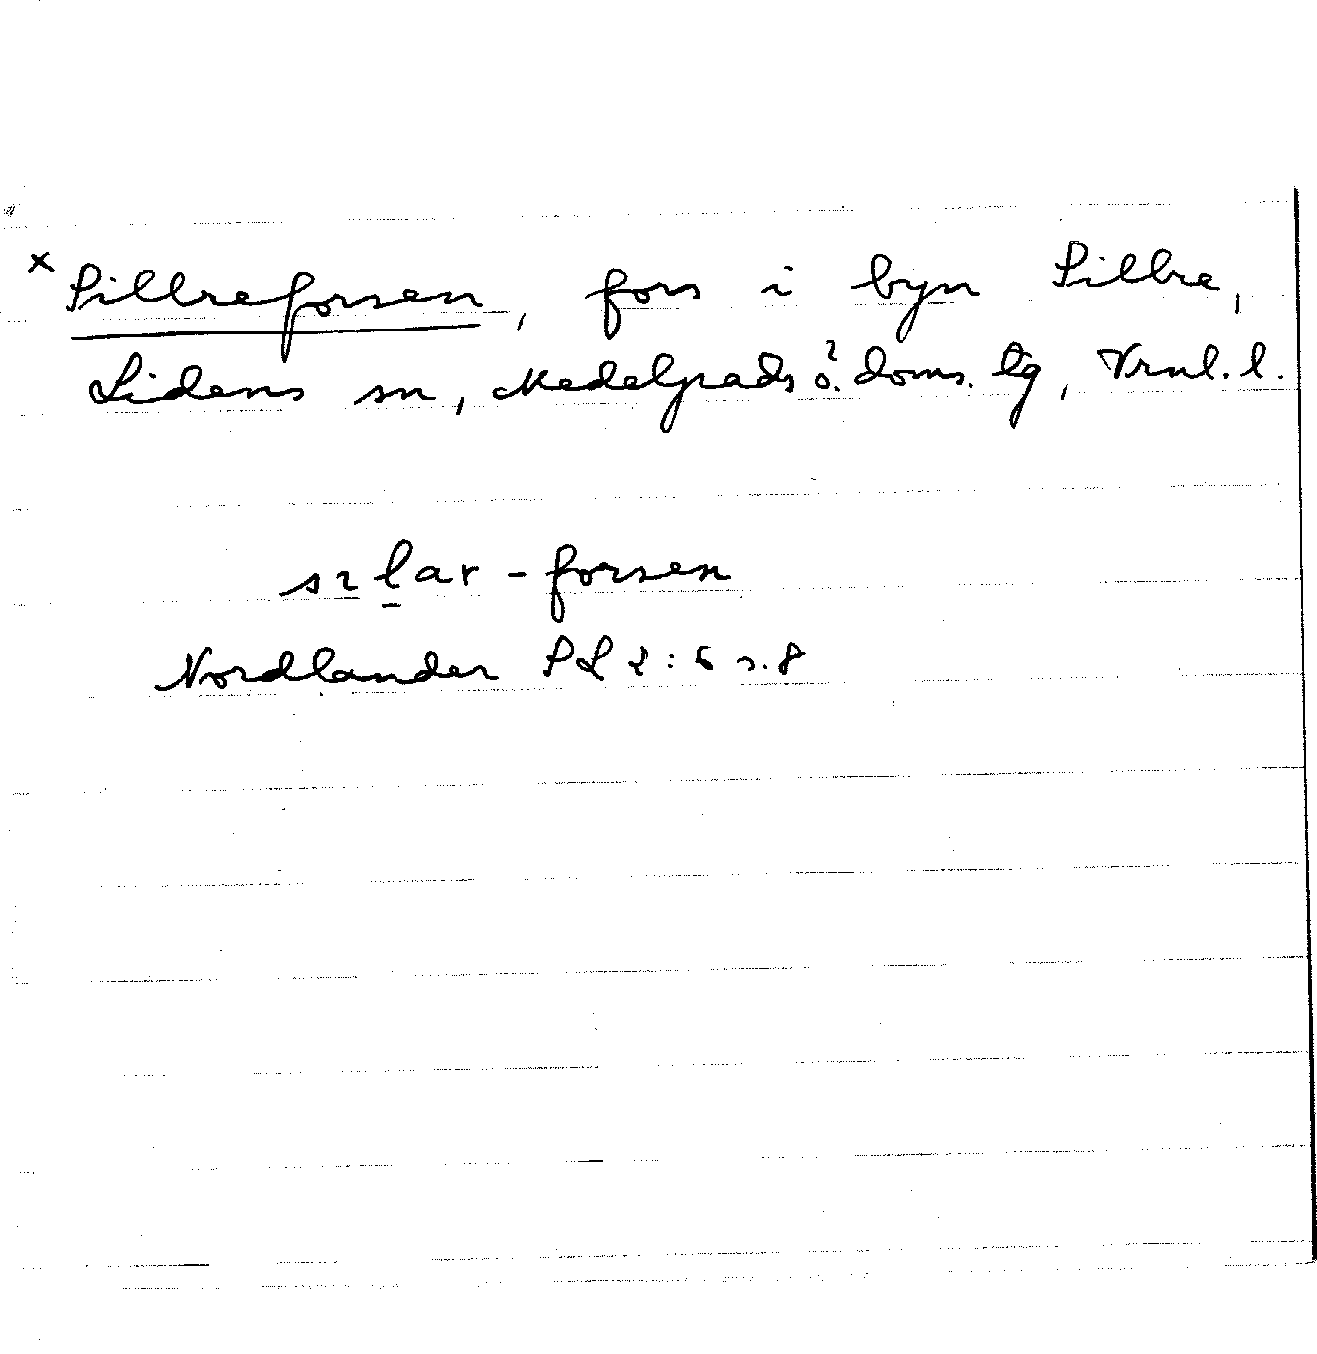 × Sillreforsen, fors i byn Sillre,
Lidens sn, Medelpads ö. doms. lg, Vrnl. l.
sılar-forsen
Nordlander SL 2:6 s. 8